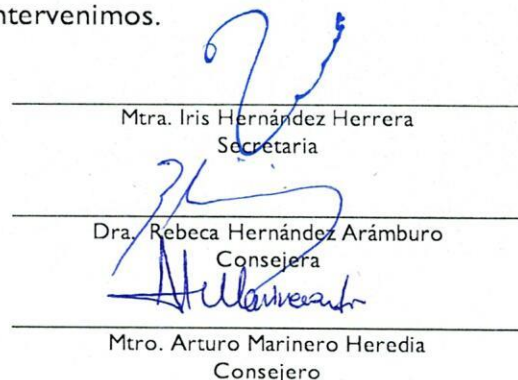 ntervenimos.
Mtra. Iris Hernández Herrera
Secretaria
Dra. Rebeca Hernández Arámburo
Consejera
Mtro. Arturo Marinero Heredia
Consejero